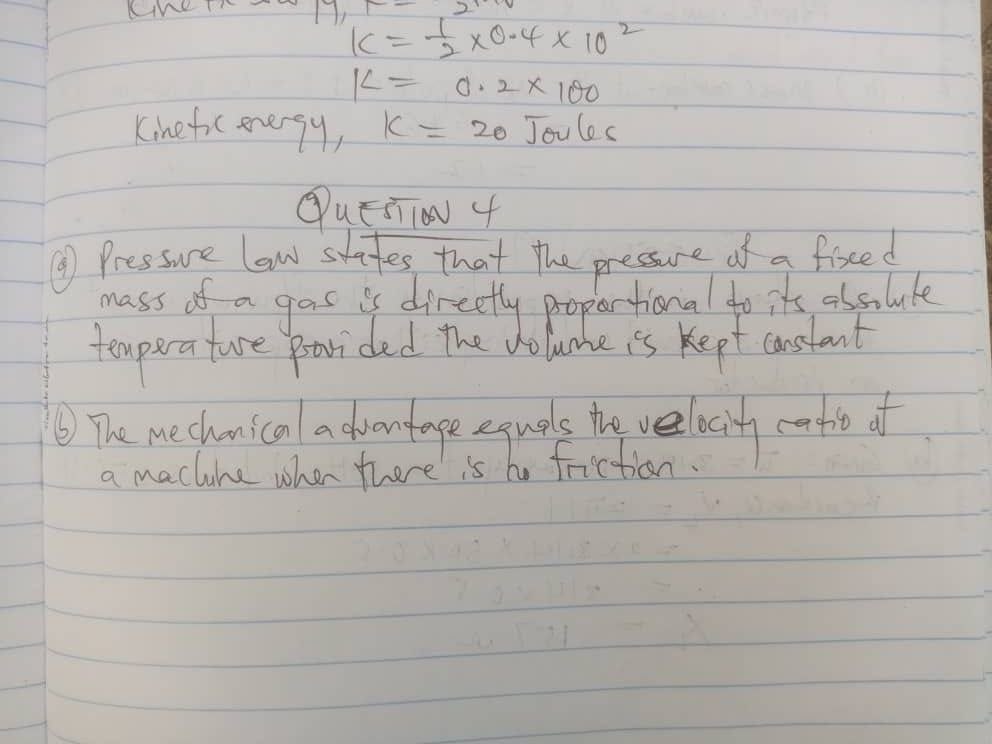 Kinetic energy, K = ½mv
K = ½ × 0.4 × 10²
K = 0.2 × 100
Kinetic energy, K = 20 Joules
QUESTION 4
(a) Pressure law states that the pressure of a fixed
mass of a gas is directly proportional to its absolute
temperature provided the volume is kept constant
(b) The mechanical advantage equals the velocity ratio of
a machine when there is no friction.